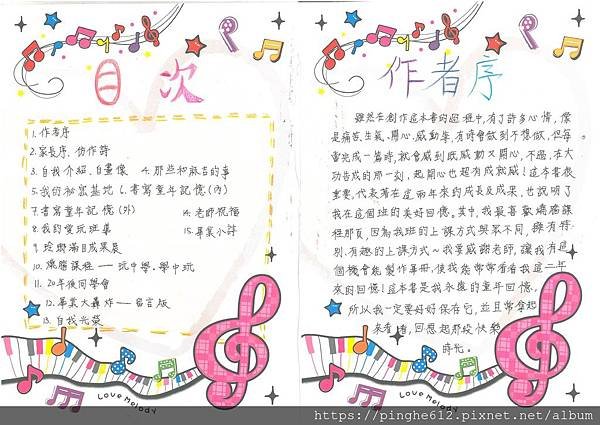 目次
1. 作者序
2. 家長序、仿作詩
3. 自我介紹、自畫像 4. 那些和麻吉的事
5. 我的秘密基地 6. 書寫童年記憶(內)
7. 書寫童年記憶(外) 14. 老師祝福
8. 我的愛玩班暴 15. 畢業小詩
9. 琅瑯滿目成果展
10. 燒腦課程——玩中學,學中玩
11. 20年後同學會
12. 畢業大轟炸——留言版
13. 自我光榮
Love Melody
作者序
雖然在創作這本書的過程中,有了許多心情,像
是痛苦、生氣、開心、感動等,有時會做到不想做,但每
當完成一篇時,就會感到既感動又開心,不過,在大
功告成的那一刻,超開心也超有成就感!這本書很
重要,代表著在這兩年來的成長及成果,也說明了
我在這個班的美好回憶。其中,我最喜歡燒腦課
程那頁,因為我班的上課方式與眾不同,擁有特
別、有趣的上課方式~我要感謝老師,讓我有這
個機會能製作畢冊,使我能常常看看我這二年
來的回憶!這本書是我永遠的童年回憶,
所以我一定要好好保存它,並且常拿起
來看看,回想起那段快樂
時光。
Love Melody
https://pinghe612.pixnet.net/album